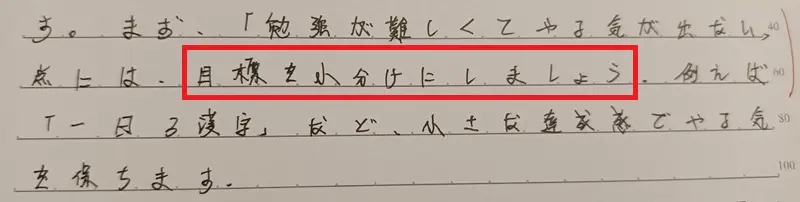 す。まず、「勉強が難しくてやる気が出ない」 40
点には、目標を小分けにしましょう。例えば 60
「一日3漢字」など、小さな達成感でやる気 80
を保ちます。 100